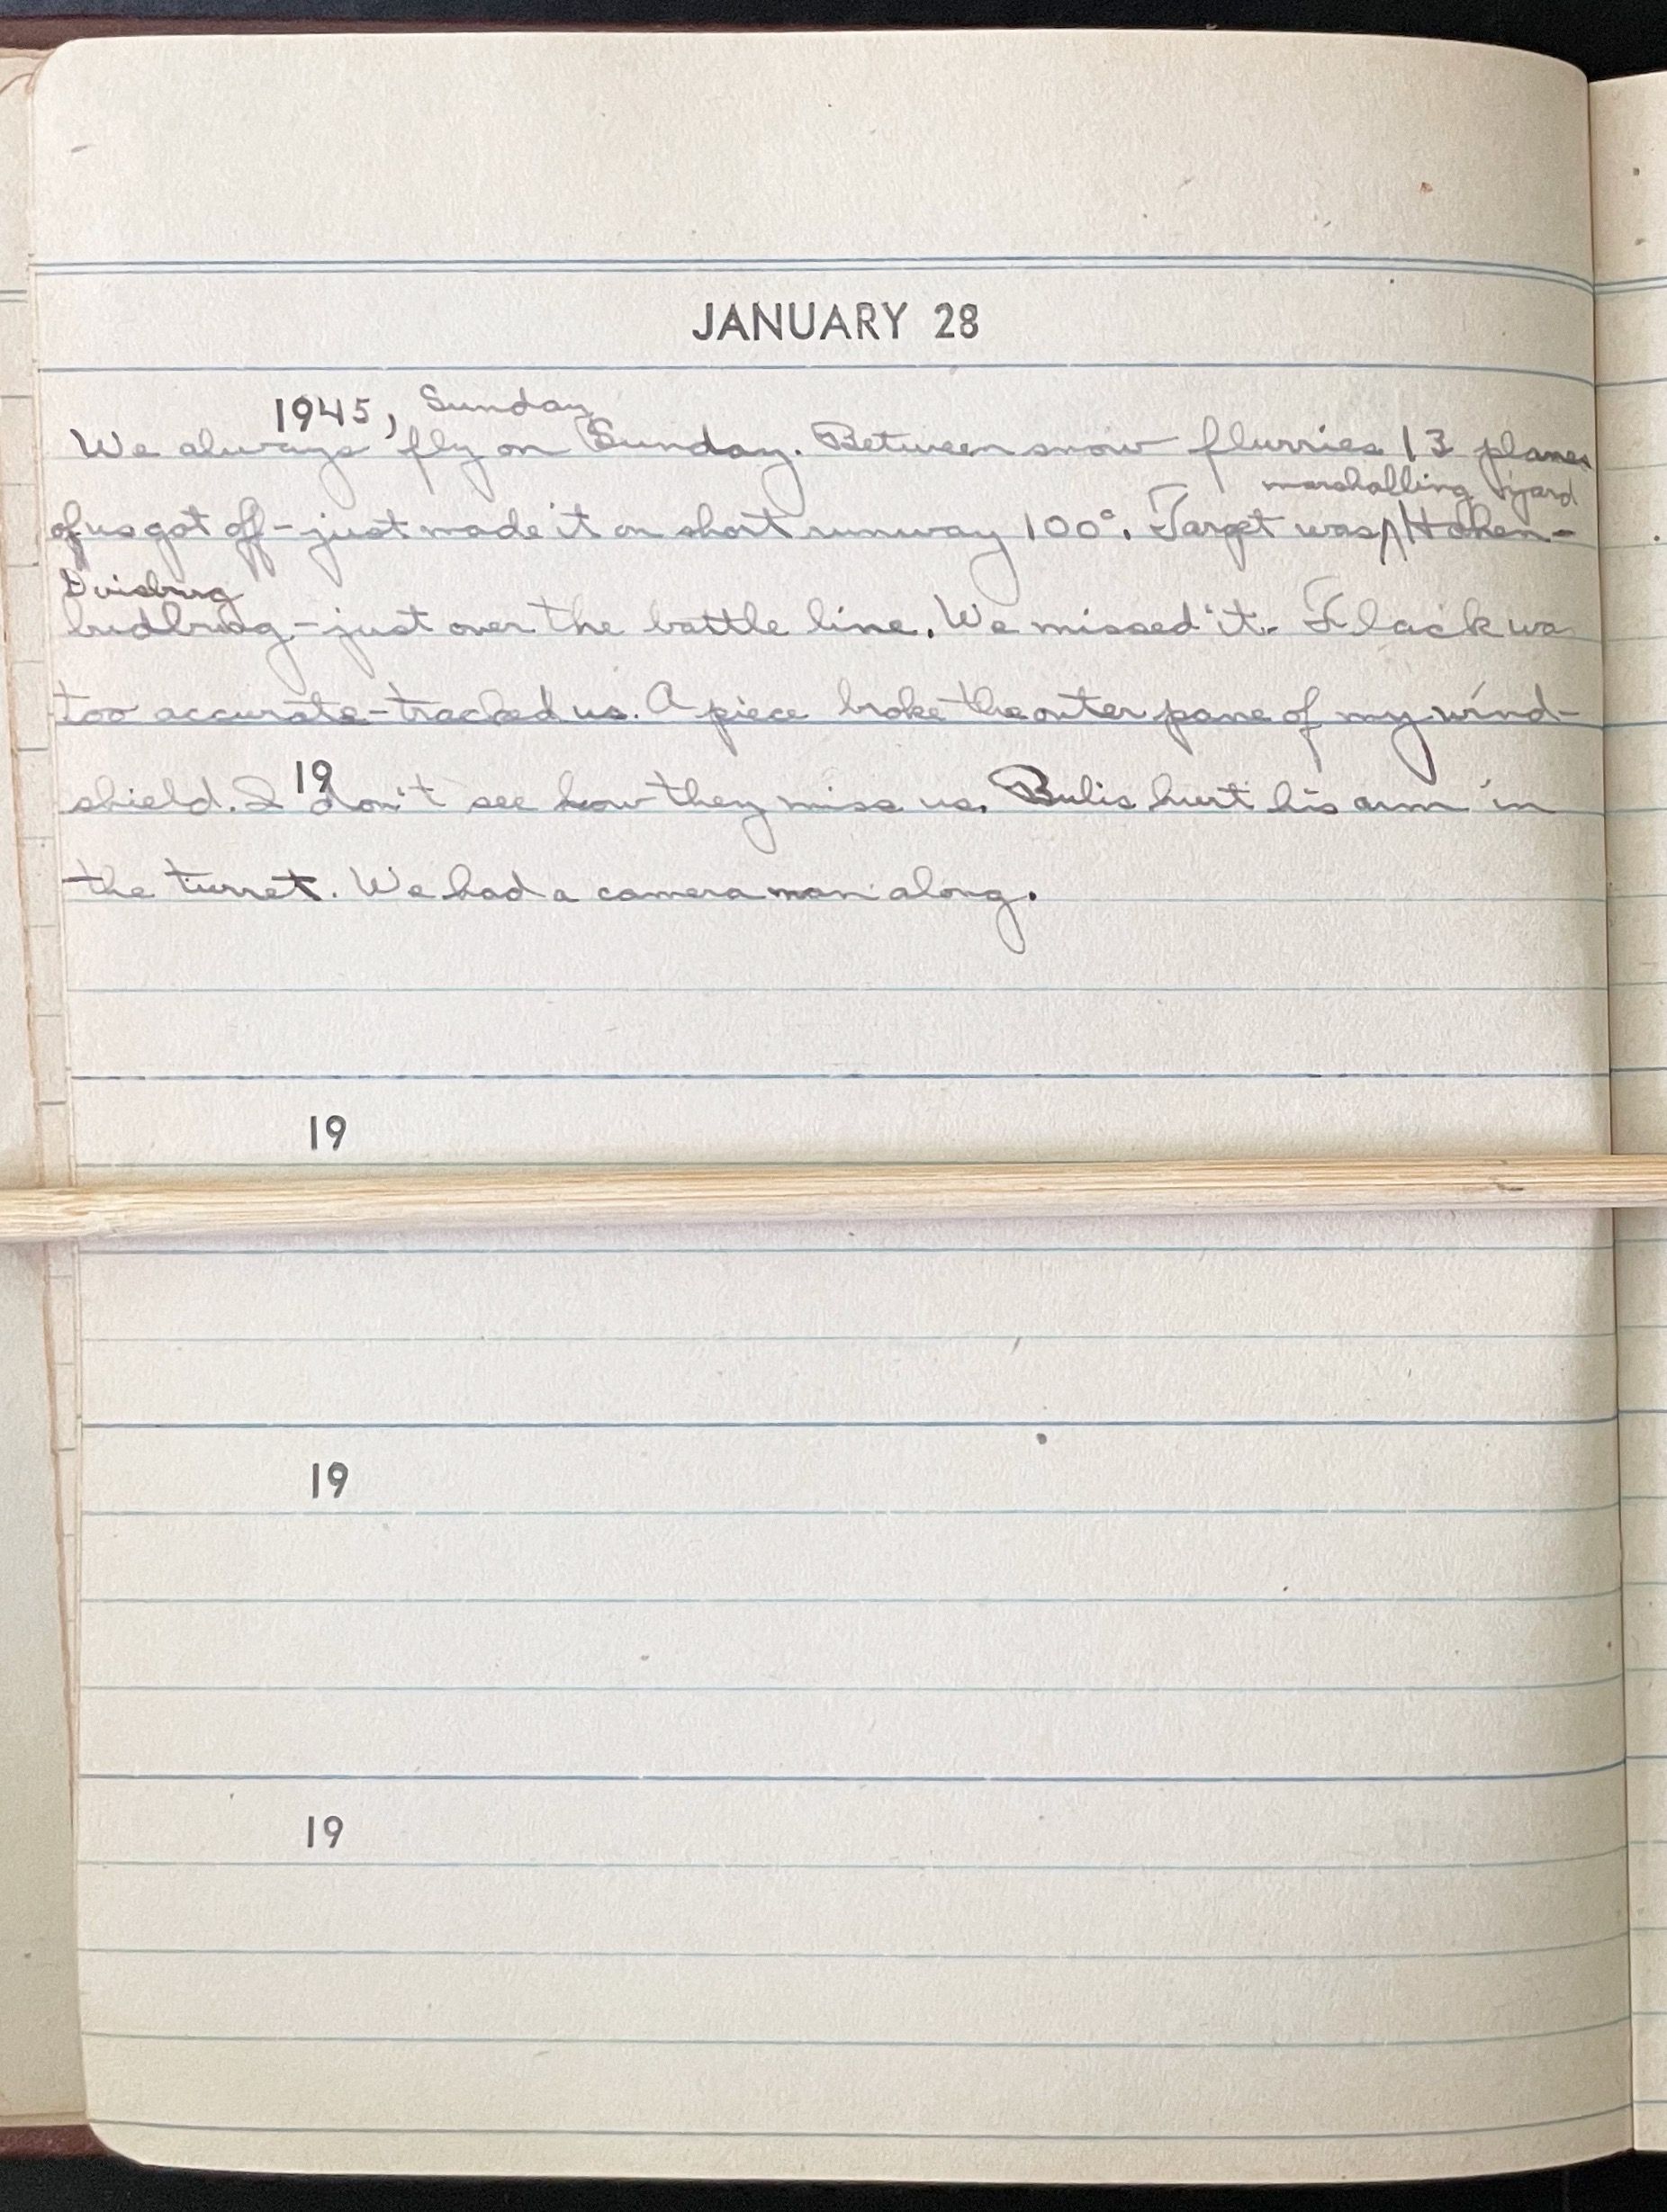 JANUARY 28
1945, Sunday
We always fly on Sunday. Between snow flurries 13 planes
marshalling yard
of us got off - just made it on short runway 100°. Target was Hohen-
Duisburg
budbrug - just over the battle line. We missed it. Flack wa
too accurate - tracked us. A piece broke the outer pane of my wind-
19
shield. I don't see how they miss us. Bulis hurt his arm in
the turret. We had a camera man along.
19
19
19